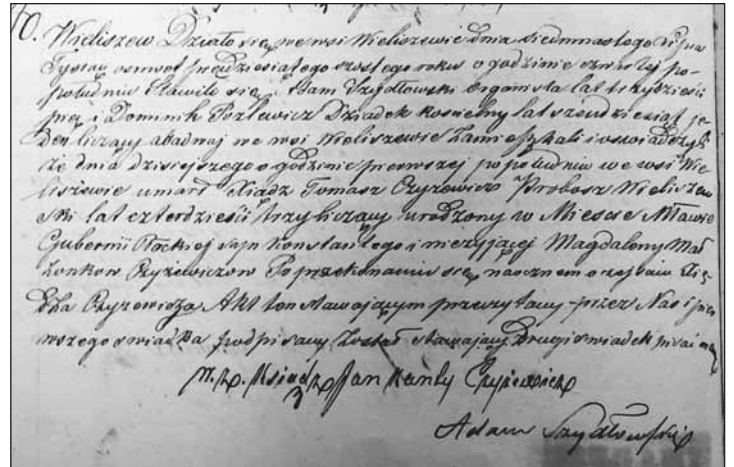 70.
Wieliszew Działo się we wsi Wieliszewie dnia siedmnastego Lipca
Tysiąc osmset pięcdziesiątego szostego roku o godzinie czwartej po-
południu Stawili się Adam Szydłowski Organista lat trzydzieści
pięć i Dominik Pozlewicz Dziadek Koscielny lat szescdziesiąt je-
den liczący abadwaj we wsi Wieliszewie Zamieszkali i oswiadczyli
że dnia dzisiejszego o godzinie pierwszej po południu we wsi Wie-
liszewie umarł Xiądz Tomasz Czyżewicz Probosz Wieliszew-
ski lat czterdzieści trzy liczący urodzony w Miescie Mławie
Gubernii Płockiej syn Konstantego i nieżyjącej Magdaleny Mał-
żonkow Czyżewiczow Po przekonaniu się naocznem o zejsciu Xię-
dza Czyżewicza Akt ten stawającym przeczytany przez Nas i pier-
wszego swiadka podpisany został stawający Drugi swiadek pisać
Ksiądz Jan Kanty Czyżewicz
Adam Szydłowski